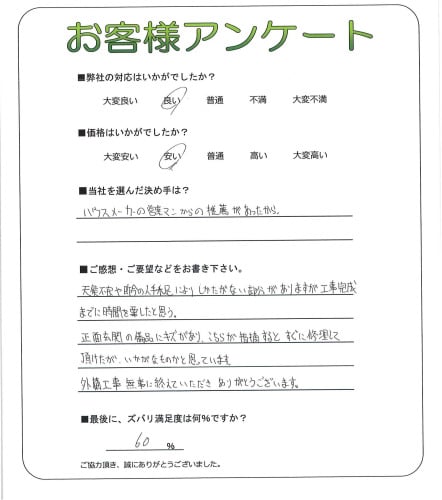 お客様アンケート
■弊社の対応はいかがでしたか？
大変良い 良い 普通 不満 大変不満
■価格はいかがでしたか？
大変安い 安い 普通 高い 大変高い
■当社を選んだ決め手は？
ハウスメーカーの営業マンからの推薦があったから。
■ご感想・ご要望などをお書き下さい。
天候不良や昨今の人手不足によりしかたがない部分がありますが工事完成
までに時間を要したと思う。
正面玄関の備品にキズがあり、こちらが指摘するとすぐに修理して
頂けたが、いかがなものかと思っています
外構工事無事に終えていただきありがとうございます。
■最後に、ズバリ満足度は何%ですか？
60 %
ご協力頂き、誠にありがとうございました。